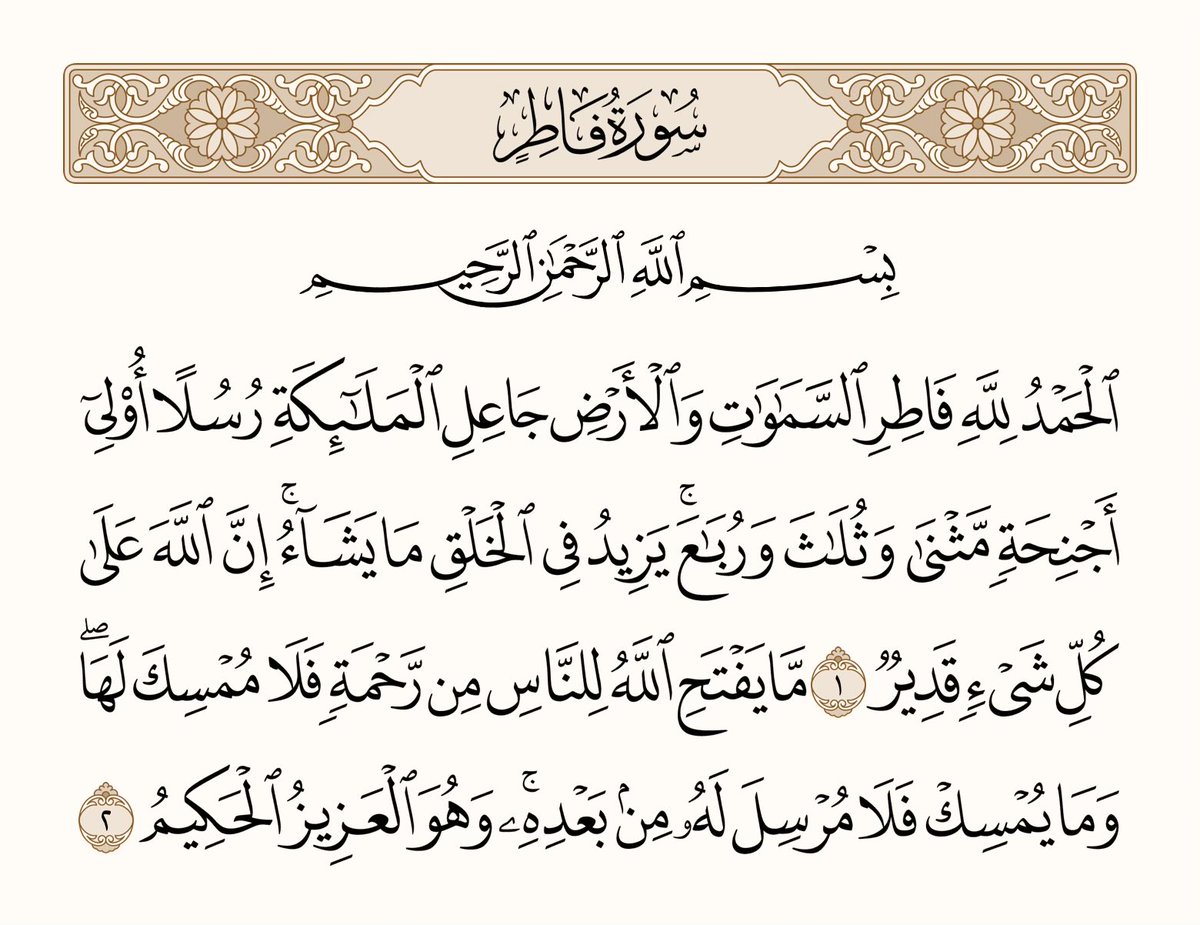 سُورَةُ فَاطِرٍ
بِسۡمِ ٱللَّهِ ٱلرَّحۡمَٰنِ ٱلرَّحِيمِ
ٱلۡحَمۡدُ لِلَّهِ فَاطِرِ ٱلسَّمَٰوَٰتِ وَٱلۡأَرۡضِ جَاعِلِ ٱلۡمَلَٰٓئِكَةِ رُسُلًا أُوْلِيٓ
أَجۡنِحَةٖ مَّثۡنَىٰ وَثُلَٰثَ وَرُبَٰعَۚ يَزِيدُ فِي ٱلۡخَلۡقِ مَا يَشَآءُۚ إِنَّ ٱللَّهَ عَلَىٰ
كُلِّ شَيۡءٖ قَدِيرٞ ١ مَّا يَفۡتَحِ ٱللَّهُ لِلنَّاسِ مِن رَّحۡمَةٖ فَلَا مُمۡسِكَ لَهَاۖ
وَمَا يُمۡسِكۡ فَلَا مُرۡسِلَ لَهُۥ مِنۢ بَعۡدِهِۦۚ وَهُوَ ٱلۡعَزِيزُ ٱلۡحَكِيمُ ٢